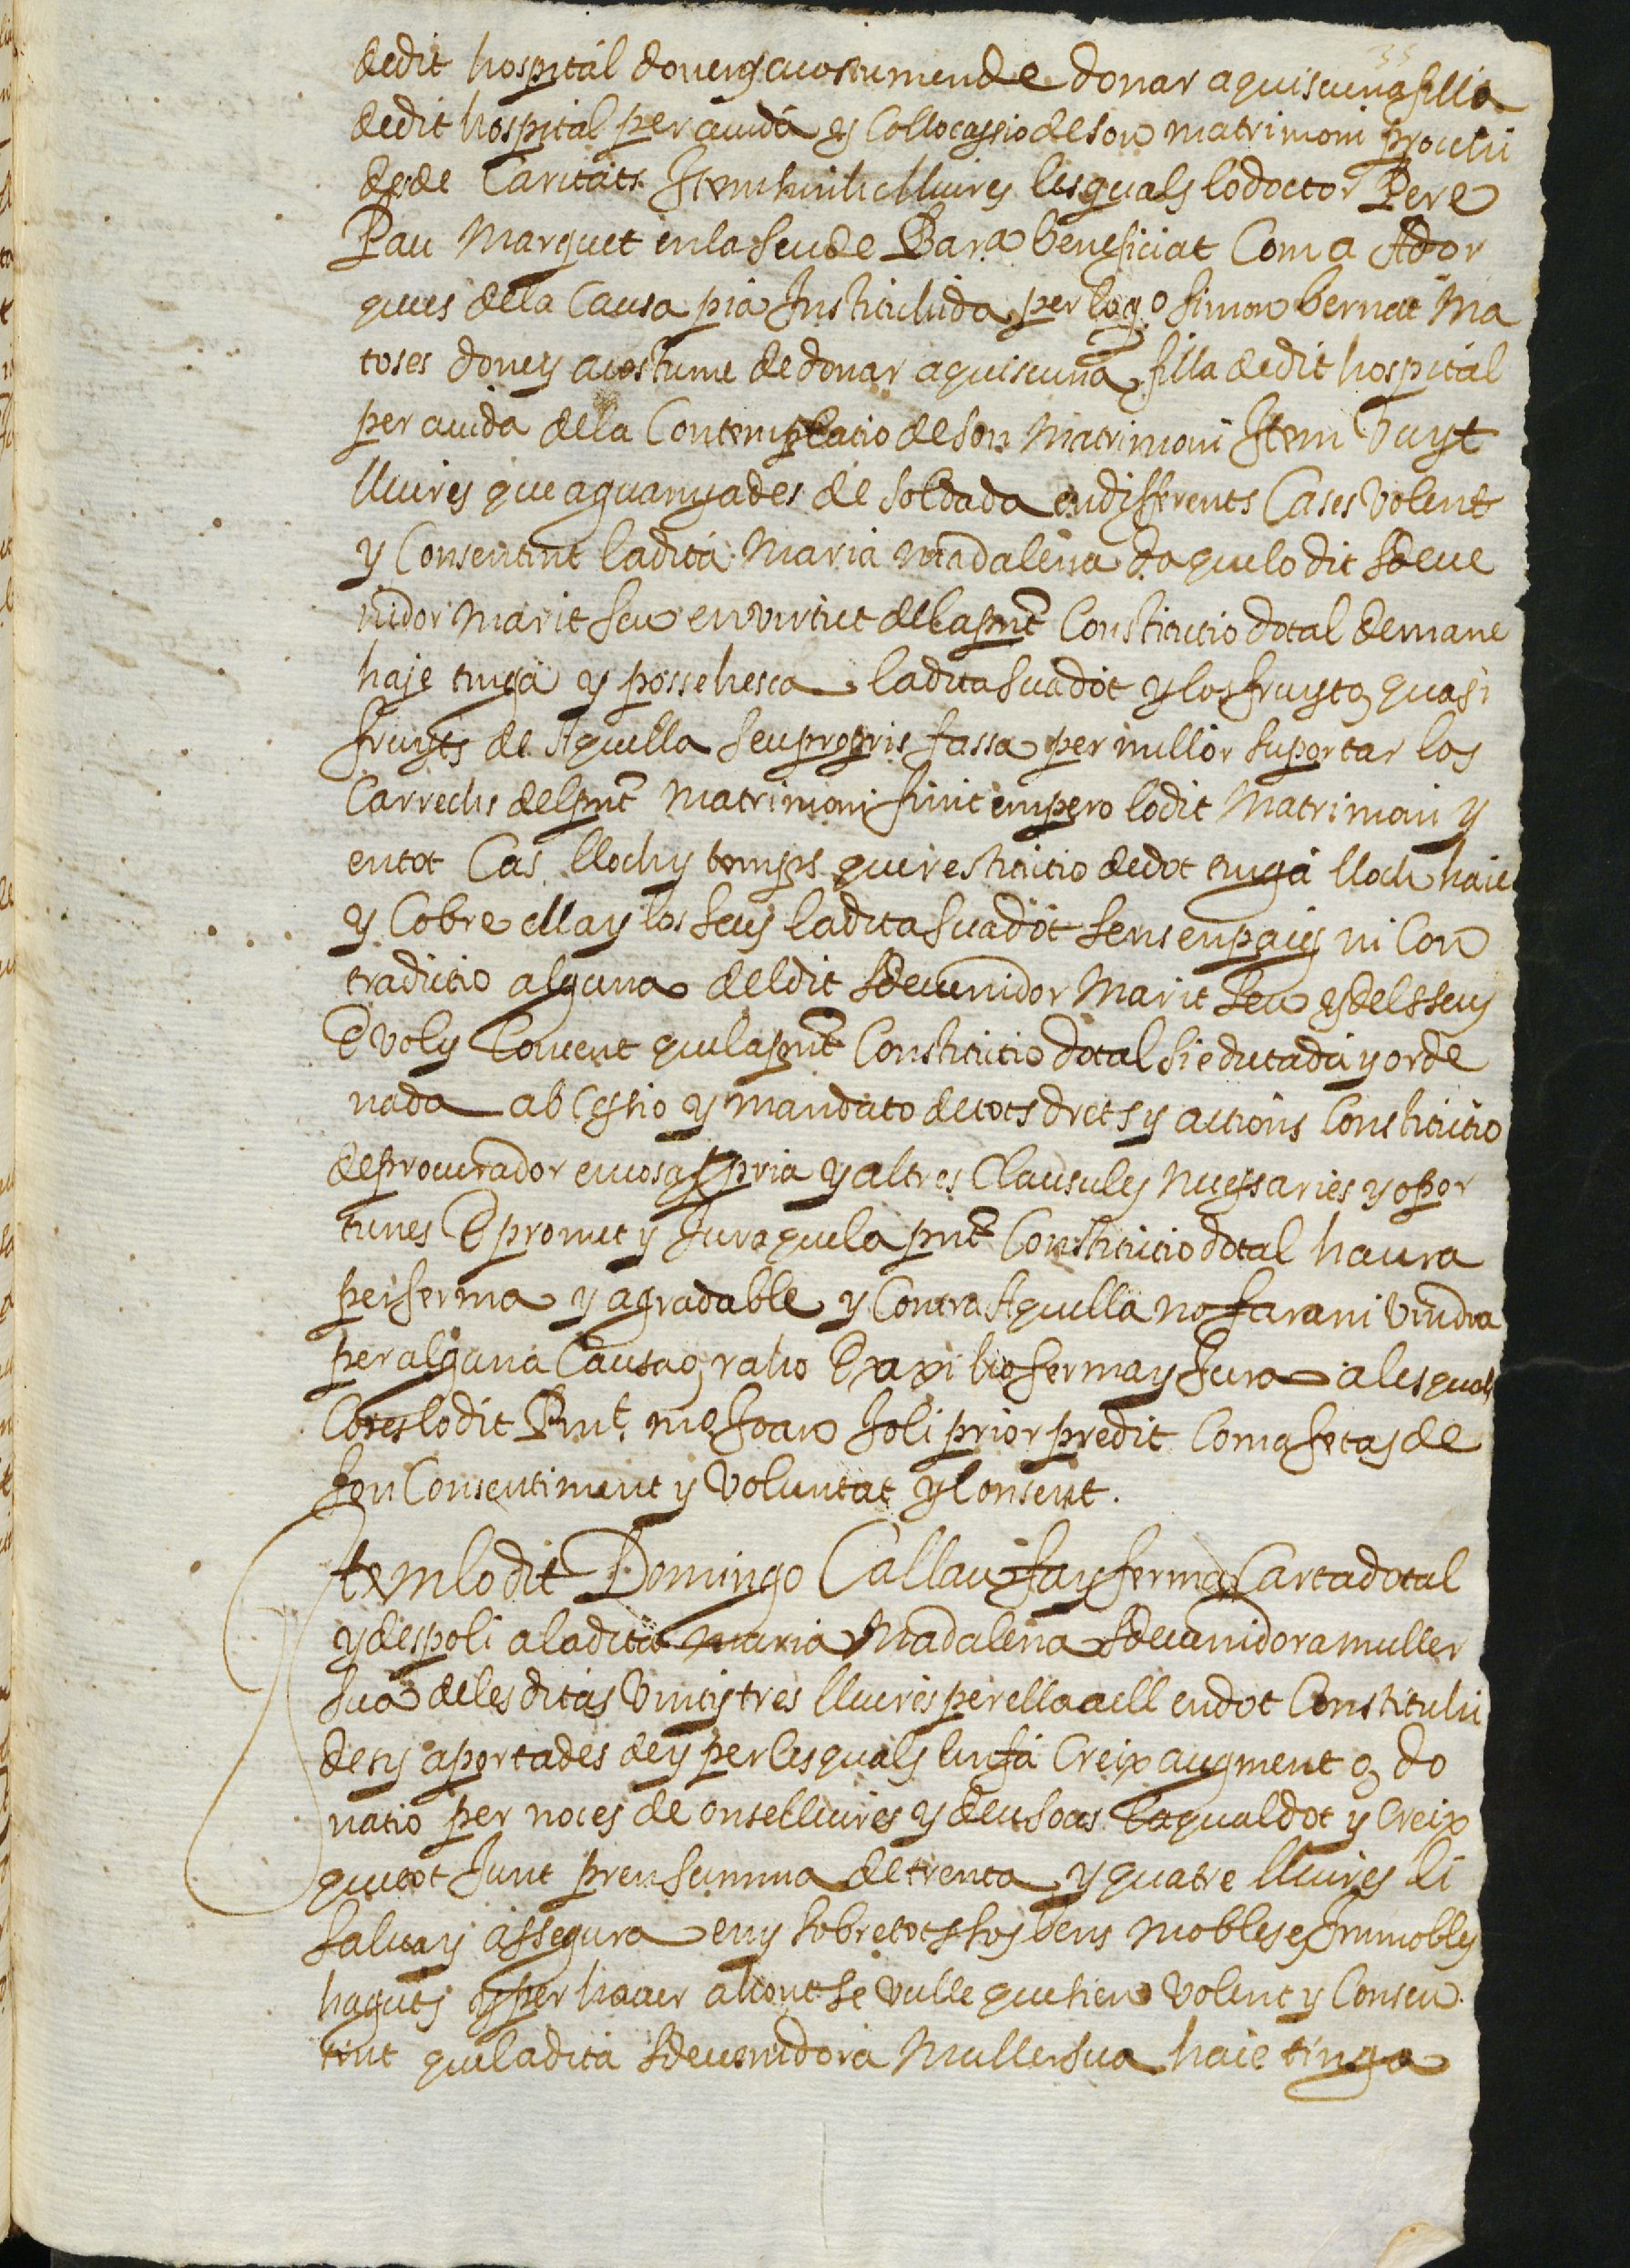 dedit hospital donen y acostumende donar aquiscuna filla
dedit hospital per aiuda y collocassio de son matrimoni procehi
de de Caritats Item sinch lliures les quals lo doctor Pere
Pau Marquet en la Seu de Barª beneficiat Com a Ador
ques de la Causa pia Instituhida per lo qº Simon bernat Ma
toses done y acostume de donar a quiscuna filla de dit hospital
per aiuda de la Contemplatio de son Matrimoni Item Vuyt
lliures que a guanyades de soldada en differents Cases Volent
y Consentint la dita Maria Madalena Que lo dit sdeve
nidor Marit seu en virtut de la pnt Constitutio dotal demane
haje tinga y possehesca la dita sua dot y los fruyts o quasi
fruyts de Aquella seu propris fassa per millor suportar los
Carrechs del pnt Matrimoni finit empero lo dit Matrimoni y
en tot Cas lloch y temps que restitutio de dot tinga lloch haie
y Cobre ella y los seus la dita sua dot sens enpaig ni Con
tradictio alguna del dit sdevenidor Marit seu y dels seus
E vol y Consent que la pnt Constitutio dotal sie dictada y orde
nada ab Cessio y mandato de tots drets y actions Constitutio
de procurador en cosa ppria y altres Clausules necessaries y opor
tunes E promet y Jura que la pnt Constitutio dotal haura
per ferma y agradable y Contra Aquella no fara ni vindra
per alguna Causa o ratio E axi ho ferma y Jura a les quals
Coses lo dit Rnt mo Joan Soli prior predit Com a fetas de
son Consentiment y voluntat y Consent.
Item lo dit Domingo Callau fa y ferma Carta dotal
y de espoli a la dita Maria Madalena sdevenidora muller
sua de les ditas vint y tres lliures per ella a ell en dot Constituhi
des y aportades de y per les quals lin fa Creix augment o do
natio per noces de onse lliures y deu sous la qual dot y Creix
que tot Junt pren summa de trenta y quatre lliures li
salva y assegura en y sobre tots sos bens Mobles e Immobles
haguts y per haver ahont se vulle que sien Volent y Consen
tint que la dita sdevenidora Muller sua haie tinga